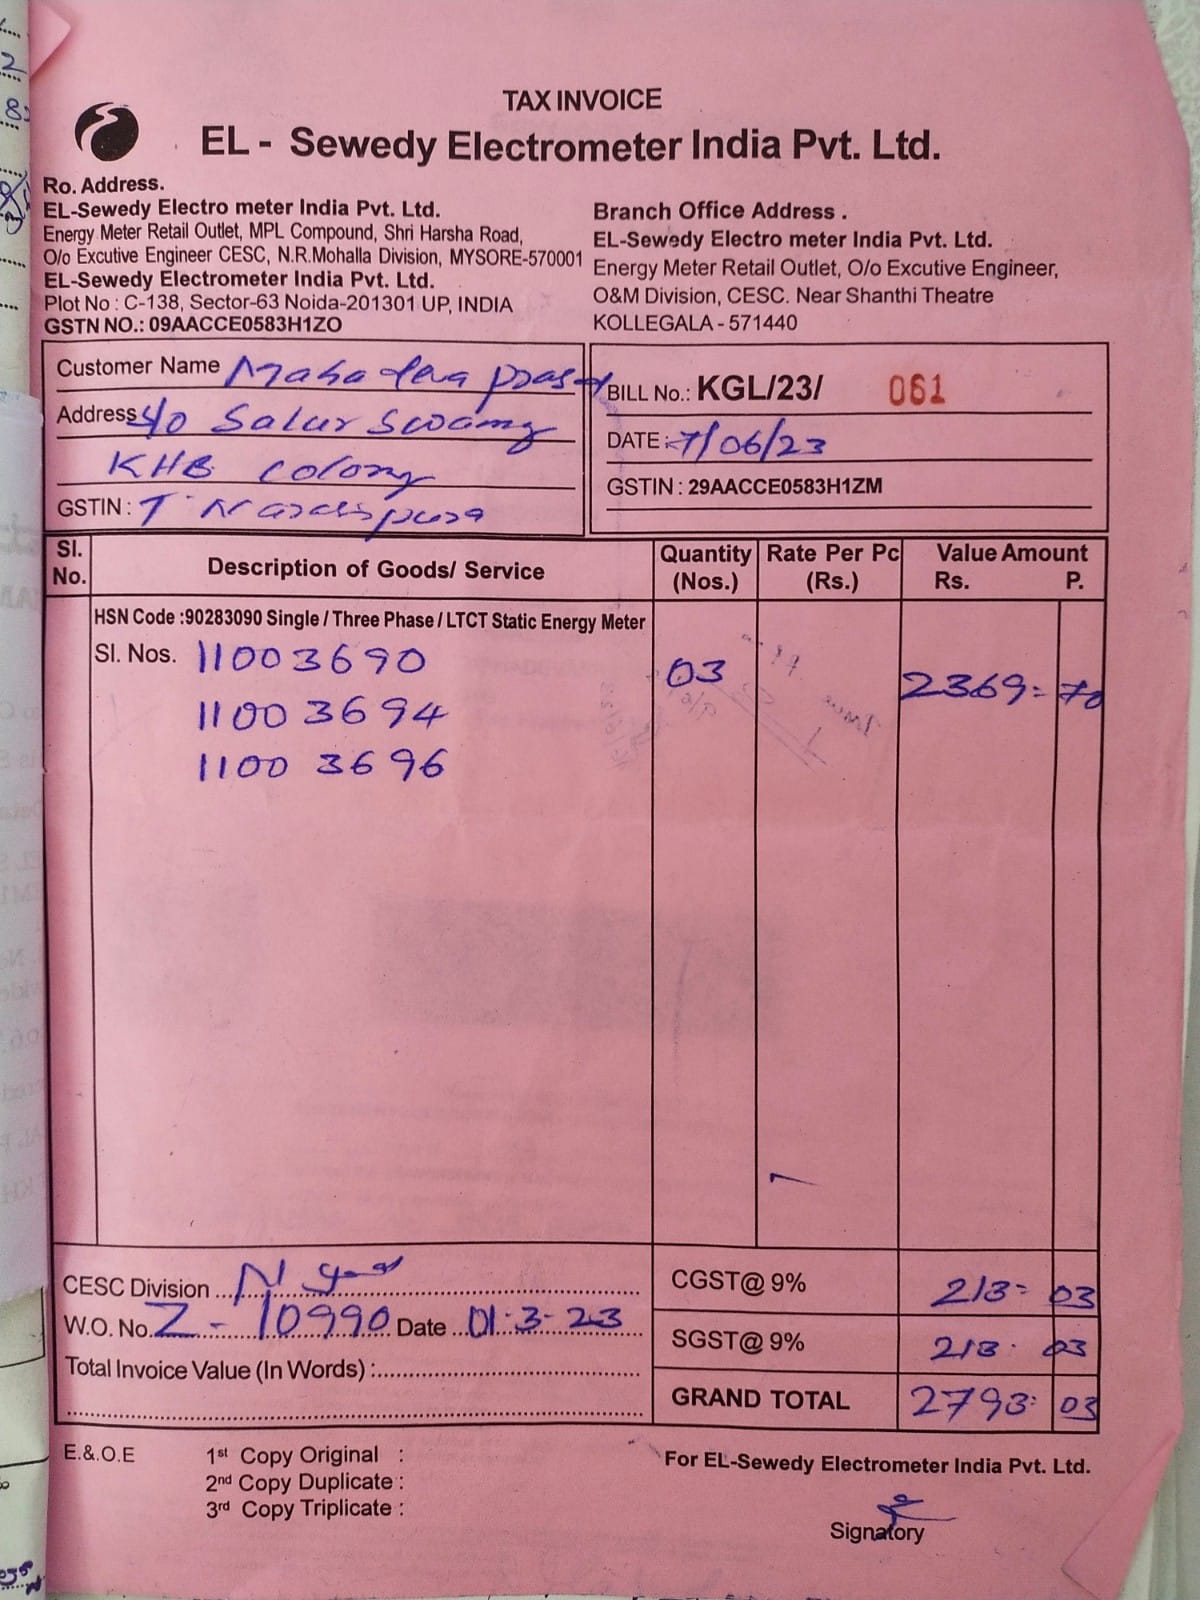 TAX INVOICE
EL - Sewedy Electrometer India Pvt. Ltd.
Ro. Address.
EL-Sewedy Electro meter India Pvt. Ltd.
Energy Meter Retail Outlet, MPL Compound, Shri Harsha Road,
O/o Excutive Engineer CESC, N.R.Mohalla Division, MYSORE-570001
EL-Sewedy Electrometer India Pvt. Ltd.
Plot No : C-138, Sector-63 Noida-201301 UP, INDIA
GSTN NO.: 09AACCE0583H1ZO
Branch Office Address .
EL-Sewedy Electro meter India Pvt. Ltd.
Energy Meter Retail Outlet, O/o Excutive Engineer,
O&M Division, CESC. Near Shanthi Theatre
KOLLEGALA - 571440
Customer Name Mahadeva prasad
Address S/o Salur Swamy
KHB Colony
GSTIN : T Narasipura
BILL No.: KGL/23/ 061
DATE : 7/06/23
GSTIN : 29AACCE0583H1ZM
Sl. No. Description of Goods/ Service Quantity (Nos.) Rate Per Pc (Rs.) Value Amount Rs. P.
HSN Code :90283090 Single / Three Phase / LTCT Static Energy Meter
Sl. Nos. 11003690 03 2369=70
11003694
11003696
CESC Division ...
W.O. No. Z - 10990 Date 01.3-23
Total Invoice Value (In Words) :
CGST@ 9% 213= 03
SGST@ 9% 213. 03
GRAND TOTAL 2793: 03
E.&.O.E
1st Copy Original :
2nd Copy Duplicate :
3rd Copy Triplicate :
For EL-Sewedy Electrometer India Pvt. Ltd.
Signatory